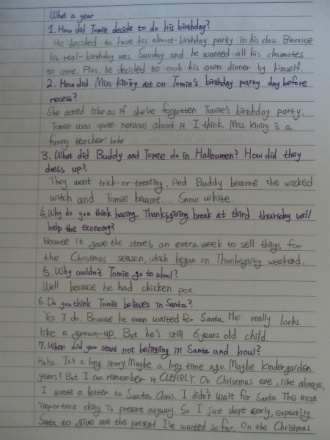 What a year
1. How did Tomie decide to do his birthday?
He decided to have his almost-birthday party in his class. Because
his real-birthday was Sunday and he wanted all his classmates
to come. Plus, he decided to cook his own dinner by himself.
2. How did Miss Kiniry act on Tomie's birthday party day before
recess?
She acted like as if she've forgotten Tomie's birthday party.
Tomie was quite nervous about it I think. Miss Kiniry is a
funny teacher
3. What did Buddy and Tomie do in Halloween? How did they
dress up?
They went trick-or-treating. And Buddy became the wicked
witch and Tomie became... Snow white.
4. Why do you think having Thanksgiving break at third thursday will
help the economy?
Because it gave the stores an extra week to sell things for
the Christmas season, which began on Thanksgiving weekend.
5. Why couldn't Tomie go to school?
Well because he had chicken pox.
6. Do you think Tomie believes in Santa?
Yes I do. Because he even waited for Santa. He really looks
like a grown-up. But he's still 6 years old child.
7. When did you start not believing in Santa and how?
Haha. It's a long story. Maybe a long time ago. Maybe kindergarden
years? But I can remember it CLEARLY. On Christmas eve, like always,
I wrote a letter to Santa Claus. I didn't wait for Santa. The most
important thing is present anyway. So I just slept early, expecting
Santa to give me the present I've wanted so far. On the Christmas